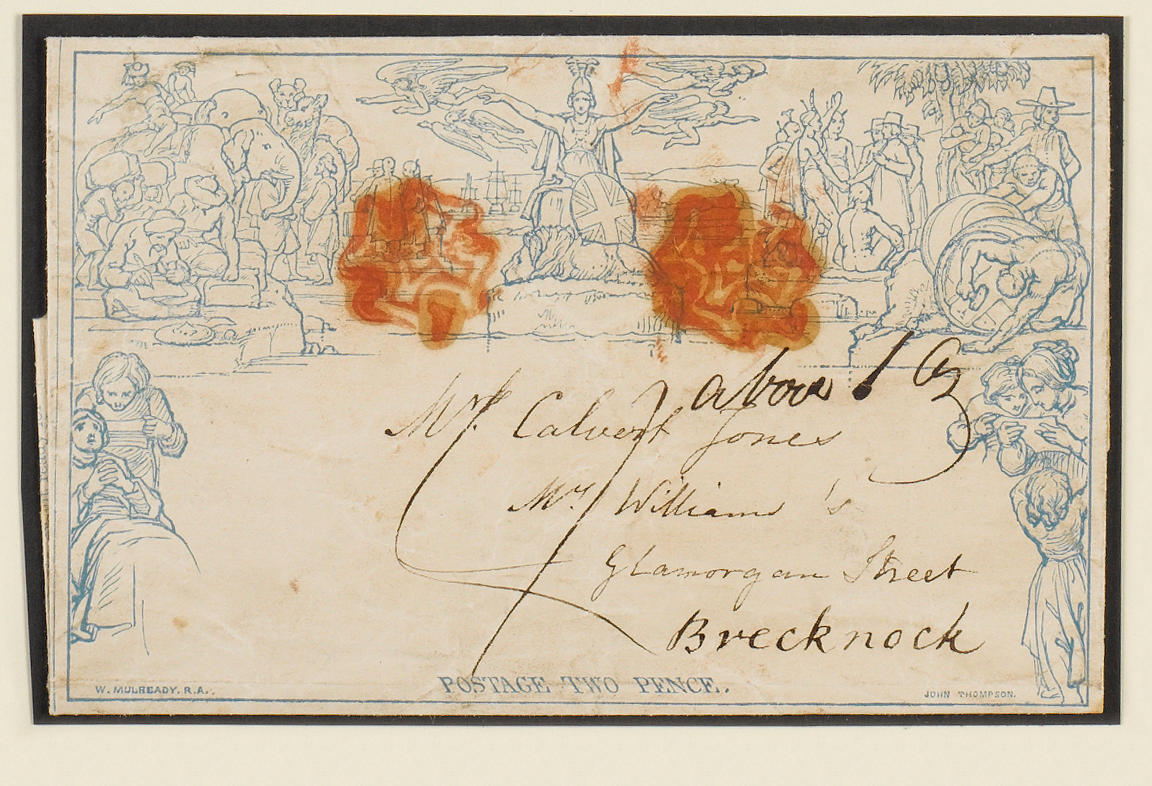 above 1 oz
Mrs. Calvert Jones
Mrs Williams's
Glamorgan Street
Brecknock
POSTAGE TWO PENCE.
W. MULREADY. R.A.
JOHN THOMPSON.